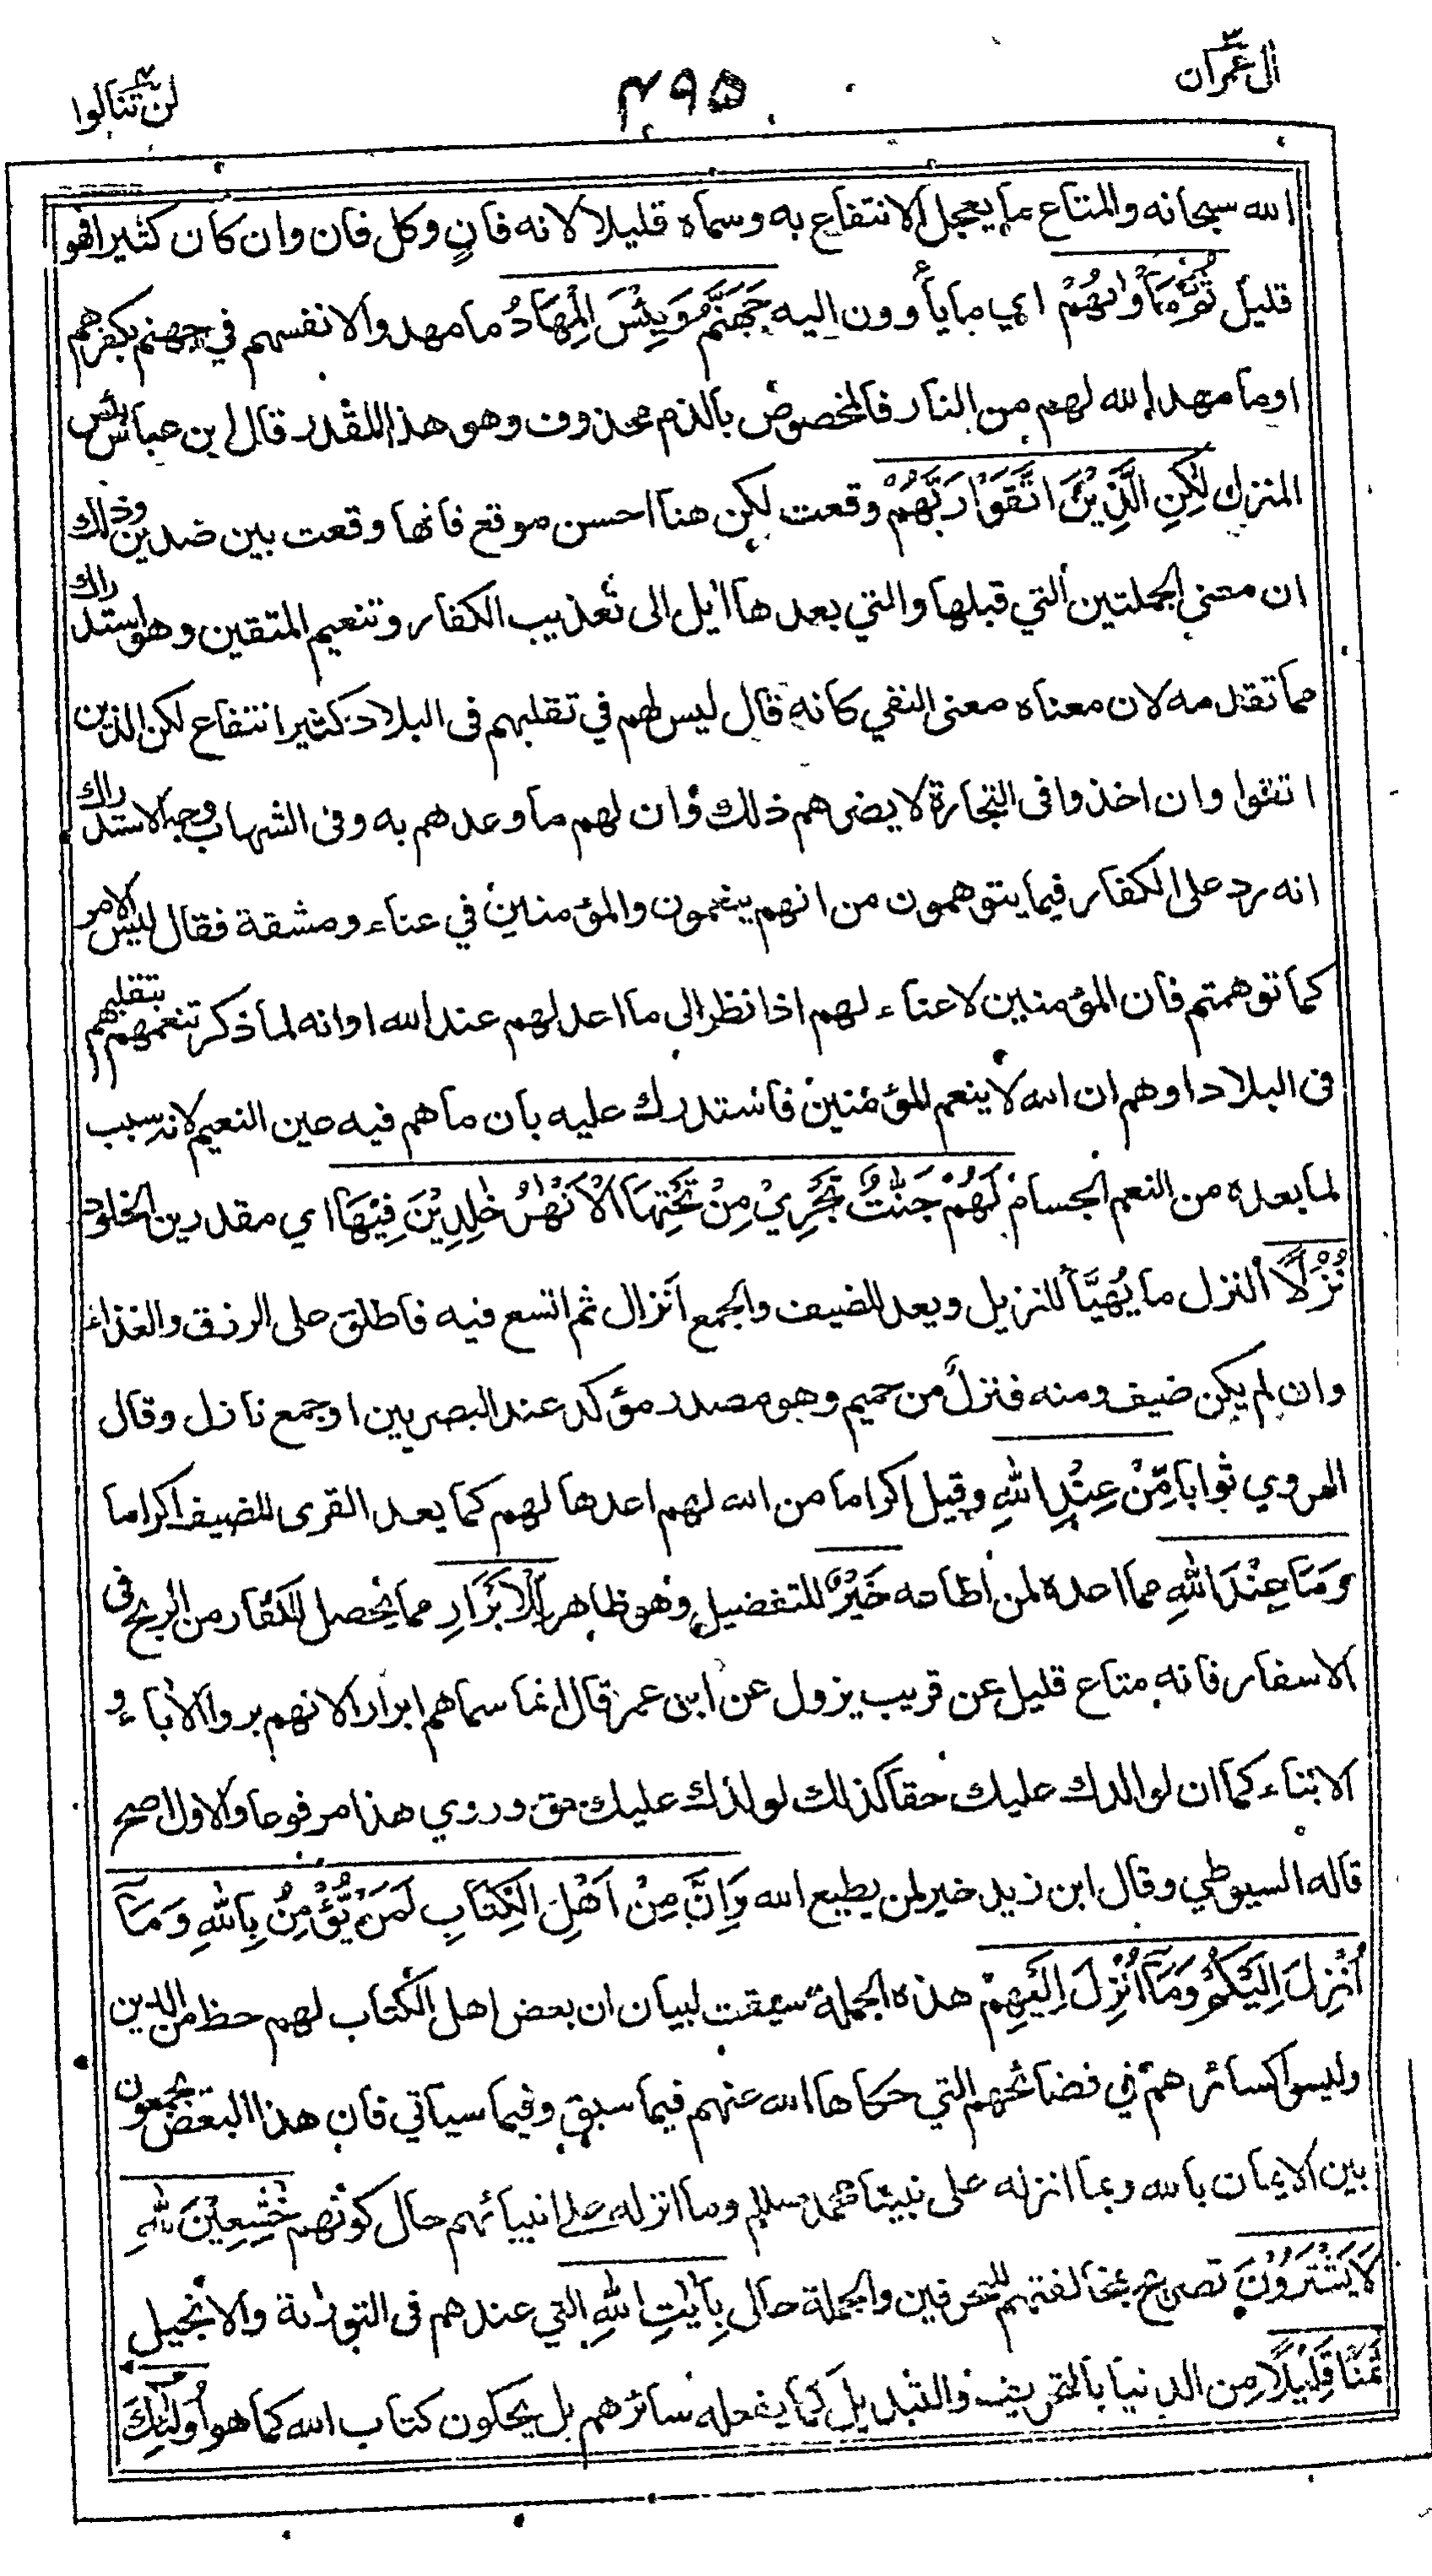 اٰل عمران ٣
۴۹۵
لن تنالوا ۴
الله سبحانه والمتاع ما يعجل الانتفاع به وسماه قليلا لانه فانٍ وكل فان وان كان كثيرا فهو
قليل ثُمَّ مَأْوٰىهُمْ اي ما يأوون اليه جَهَنَّمُ وَبِئْسَ الْمِهَادُ ما مهدوا لانفسهم في جهنم بكفرهم
او ما مهد الله لهم من النار فالمخصوص بالذم محذوف وهو هذا المقدر قال ابن عباس بئس
المنزل لٰكِنِ الَّذِيْنَ اتَّقَوْا رَبَّهُمْ وقعت لكن هنا احسن موقع فانها وقعت بين ضدين وذلك
ان معنى الجملتين التي قبلها والتي بعدها آيل الى تعذيب الكفار وتنعيم المتقين وهو استدراك
مما تقدمه لان معناه معنى النفي كانه قال ليس لهم في تقلبهم فى البلاد كثير انتفاع لكن الذين
اتقوا وان اخذوا فى التجارة لا يضرهم ذلك وان لهم ما وعدهم به وفى الشهاب وجه الاستدراك
انه رد على الكفار فيما يتوهمون من انهم ينعمون والمؤمنين في عناء ومشقة فقال ليس الامر
كما توهمتم فان المؤمنين لا عناء لهم اذا نظر الى ما اعد لهم عند الله او انه لما ذكر تنعمهم بتقلبهم
فى البلاد اوهم ان الله لا ينعم المؤمنين فاستدرك عليه بان ما هم فيه عين النعيم لانه سبب
لما بعده من النعم الجسام لَهُمْ جَنّٰتٌ تَجْرِيْ مِنْ تَحْتِهَا الْاَنْهٰرُ خٰلِدِيْنَ فِيْهَا اي مقدرين الخلود
نُزُلًا النزل ما يُهَيَّأ للنزيل ويعد للضيف والجمع اَنزال ثم اتسع فيه فاطلق على الرزق والغذاء
وان لم يكن ضيف ومنه فنزلٌ من حميم وهو مصدر مؤكد عند البصريين او جمع نازل وقال
الهروي ثوابا مِّنْ عِنْدِ اللهِ وقيل اكراما من الله لهم اعدها لهم كما يعد القرى للضيف اكراما
وَمَا عِنْدَ اللهِ مما اعده لمن اطاعه خَيْرٌ للتفضيل وهو ظاهر لِّلْاَبْرَارِ مما يحصل للكفار من الربح فى
الاسفار فانه متاع قليل عن قريب يزول عن ابن عمر قال انما سماهم ابرارا لانهم بروا الاٰباء و
الابناء كما ان لوالدك عليك حقا كذلك لولدك عليك حق وروي هذا مرفوعا والاول اصح
قاله السيوطي وقال ابن زيد خير لمن يطيع الله وَاِنَّ مِنْ اَهْلِ الْكِتَابِ لَمَنْ يُّؤْمِنُ بِاللهِ وَمَآ
اُنْزِلَ اِلَيْكُمْ وَمَآ اُنْزِلَ اِلَيْهِمْ هذه الجملة سيقت لبيان ان بعض اهل الكتاب لهم حظ من الدين
وليسوا كسائرهم في فضائحهم التي حكاها الله عنهم فيما سبق وفيما سياتي فان هذا البعض يجمعون
بين الايمان بالله وبما انزله على نبينا محمد صللم وما انزله على انبيائهم حال كونهم خٰشِعِيْنَ لِلّٰهِ
لَا يَشْتَرُوْنَ تصريح بمخالفتهم للمحرفين والجملة حال بِاٰيٰتِ اللهِ التي عندهم فى التوراىة والانجيل
ثَمَنًا قَلِيْلًا من الدنيا بالتحريف والتبديل كما يفعله سائرهم بل يحكون كتاب الله كما هو اُولٰٓئِكَ